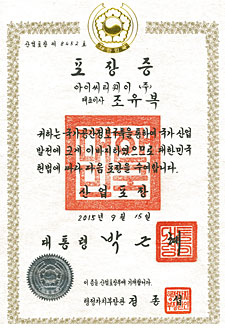 산업포장 제 8052 호
포장증
아이씨티웨이 (주)
대표이사 조유복
귀하는 국가공간정보구축을 통하여 국가 산업
발전에 크게 이바지하였으므로 대한민국
헌법에 따라 다음 포장을 수여합니다.
산업포장
2015년 9월 15일
대통령 박근혜
이 증을 산업포장부에 기재합니다.
행정자치부장관 정종섭